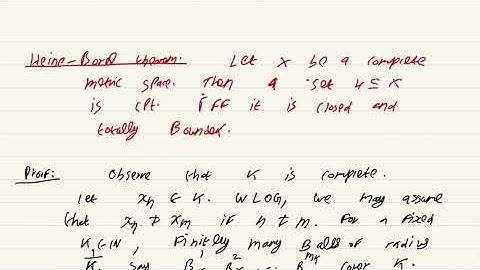 Heine-Borel theorem. Let X be a complete
metric space. Then a set K ⊆ X
is cpt. iff it is closed and
totally Bounded.
Proof: Observe that K is complete.
Let xn ∈ K. WLOG, we may assume
that xn ≠ xm if n ≠ m. For a fixed
K ∈ IN, Finitely many Balls of radius
1/K, say B1, B2 ... B mk cover K.